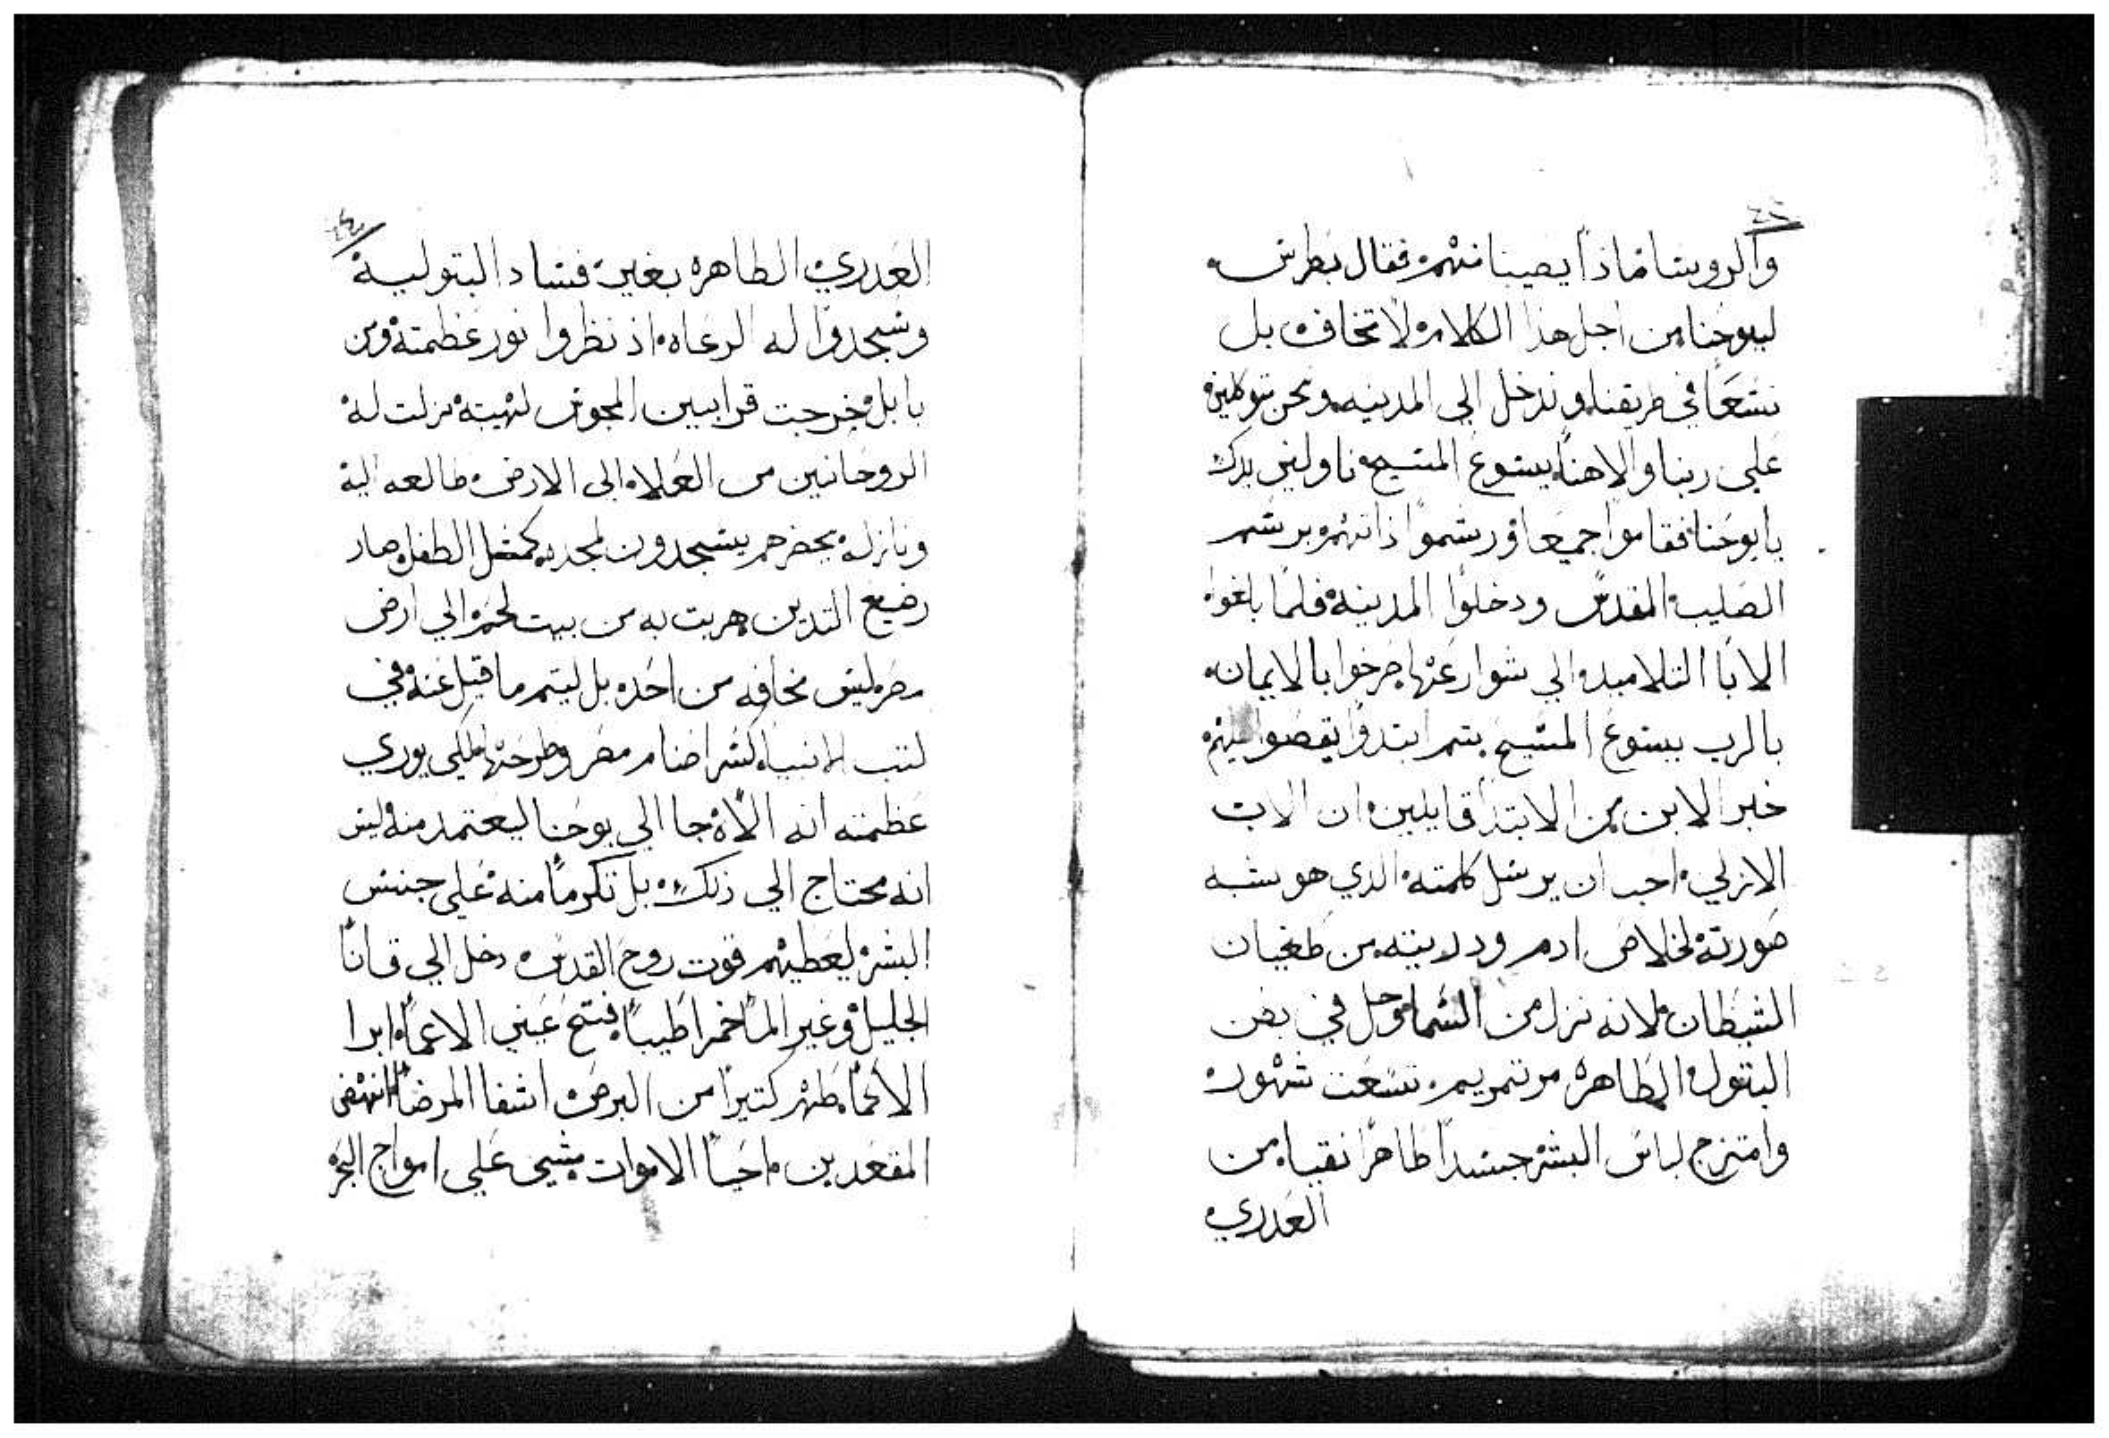 والروسا ماذا يصيبنا منهم فقال بطرس
ليوحنا من اجل هذا الكلام لا تخاف بل
نسعا في طريقنا وندخل الي المدينه ونحن متوكلين
علي ربنا والاهنا يسوع المسيح ناوليني يدك
يايوحنا فقاموا جميعا ورشموا ذاتهم برشم
الصليب المقدس ودخلوا المدينة فلما بلغوا
الابا التلاميد الي شوارعها صرخوا بالايمان
بالرب يسوع المسيح بتم ابتدوا يقصوا
خبر الابن من الابتدا قايلين ان الاب
الازلي احب ان يرسل كلمته الدي هو شبه
صورتة لخلاص ادم ودريته من طغيان
الشيطان لانه نزل من السما وحل في بطن
البتول الطاهرة مرتمريم تسعت شهور
وامتزج لباس البشر جسدا طاهرا نقيا من
العدري
العدري الطاهره بغير فساد البتولية
وسجدوا له الرعاه اذ نظروا نور عظمتة ومن
بابل خرجت قرابين المجوس لهيبته نزلت لة
الروحانين من العلا الي الارض طالعه الية
ونازله بحضرهم يسجدون لمجده كمثل الطفل صار
رضيع التدين هربت به من بيت لحم الي ارض
مصر ليس مخافه من احد بل ليتم ما قيل عنة في
كتب الانبيا كسر اصنام مصر وطرحتها لكي يوري
عظمته انه الاه جا الي يوحنا ليعتمد منة ليس
انه محتاج الي ذلك بل تكرما منة علي جنس
البشر ليعطيهم قوت روح القدس دخل الي قانا
الجليل وغير الما خمرا طيبا فتح عيني الاعما ابرا
طهر كتيرا من البرص اشفا المرضا انهض
المقعدين احيا الاموات مشي علي امواج البحر